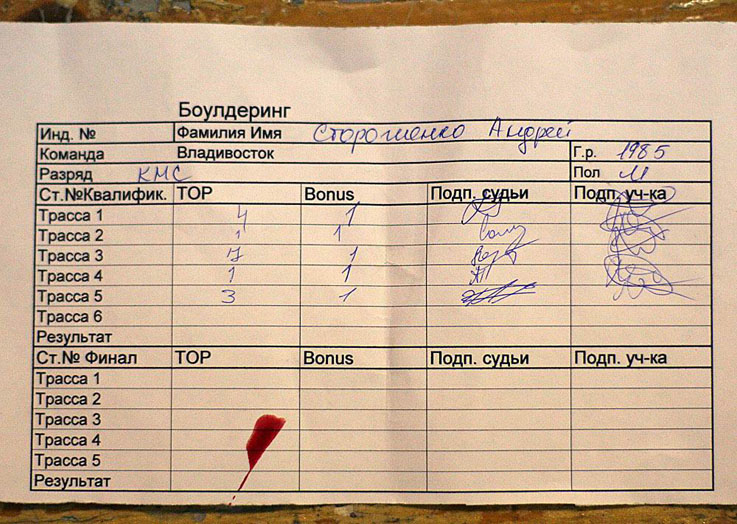 Боулдеринг
Инд. № Фамилия Имя Сторошенко Андрей
Команда Владивосток Г.р. 1985
Разряд КМС Пол М
Ст.№Квалифик. TOP Bonus Подп. судьи Подп. уч-ка
Трасса 1 4 1
Трасса 2 1 1
Трасса 3 7 1
Трасса 4 1 1
Трасса 5 3 1
Трасса 6
Результат
Ст.№ Финал TOP Bonus Подп. судьи Подп. уч-ка
Трасса 1
Трасса 2
Трасса 3
Трасса 4
Трасса 5
Результат